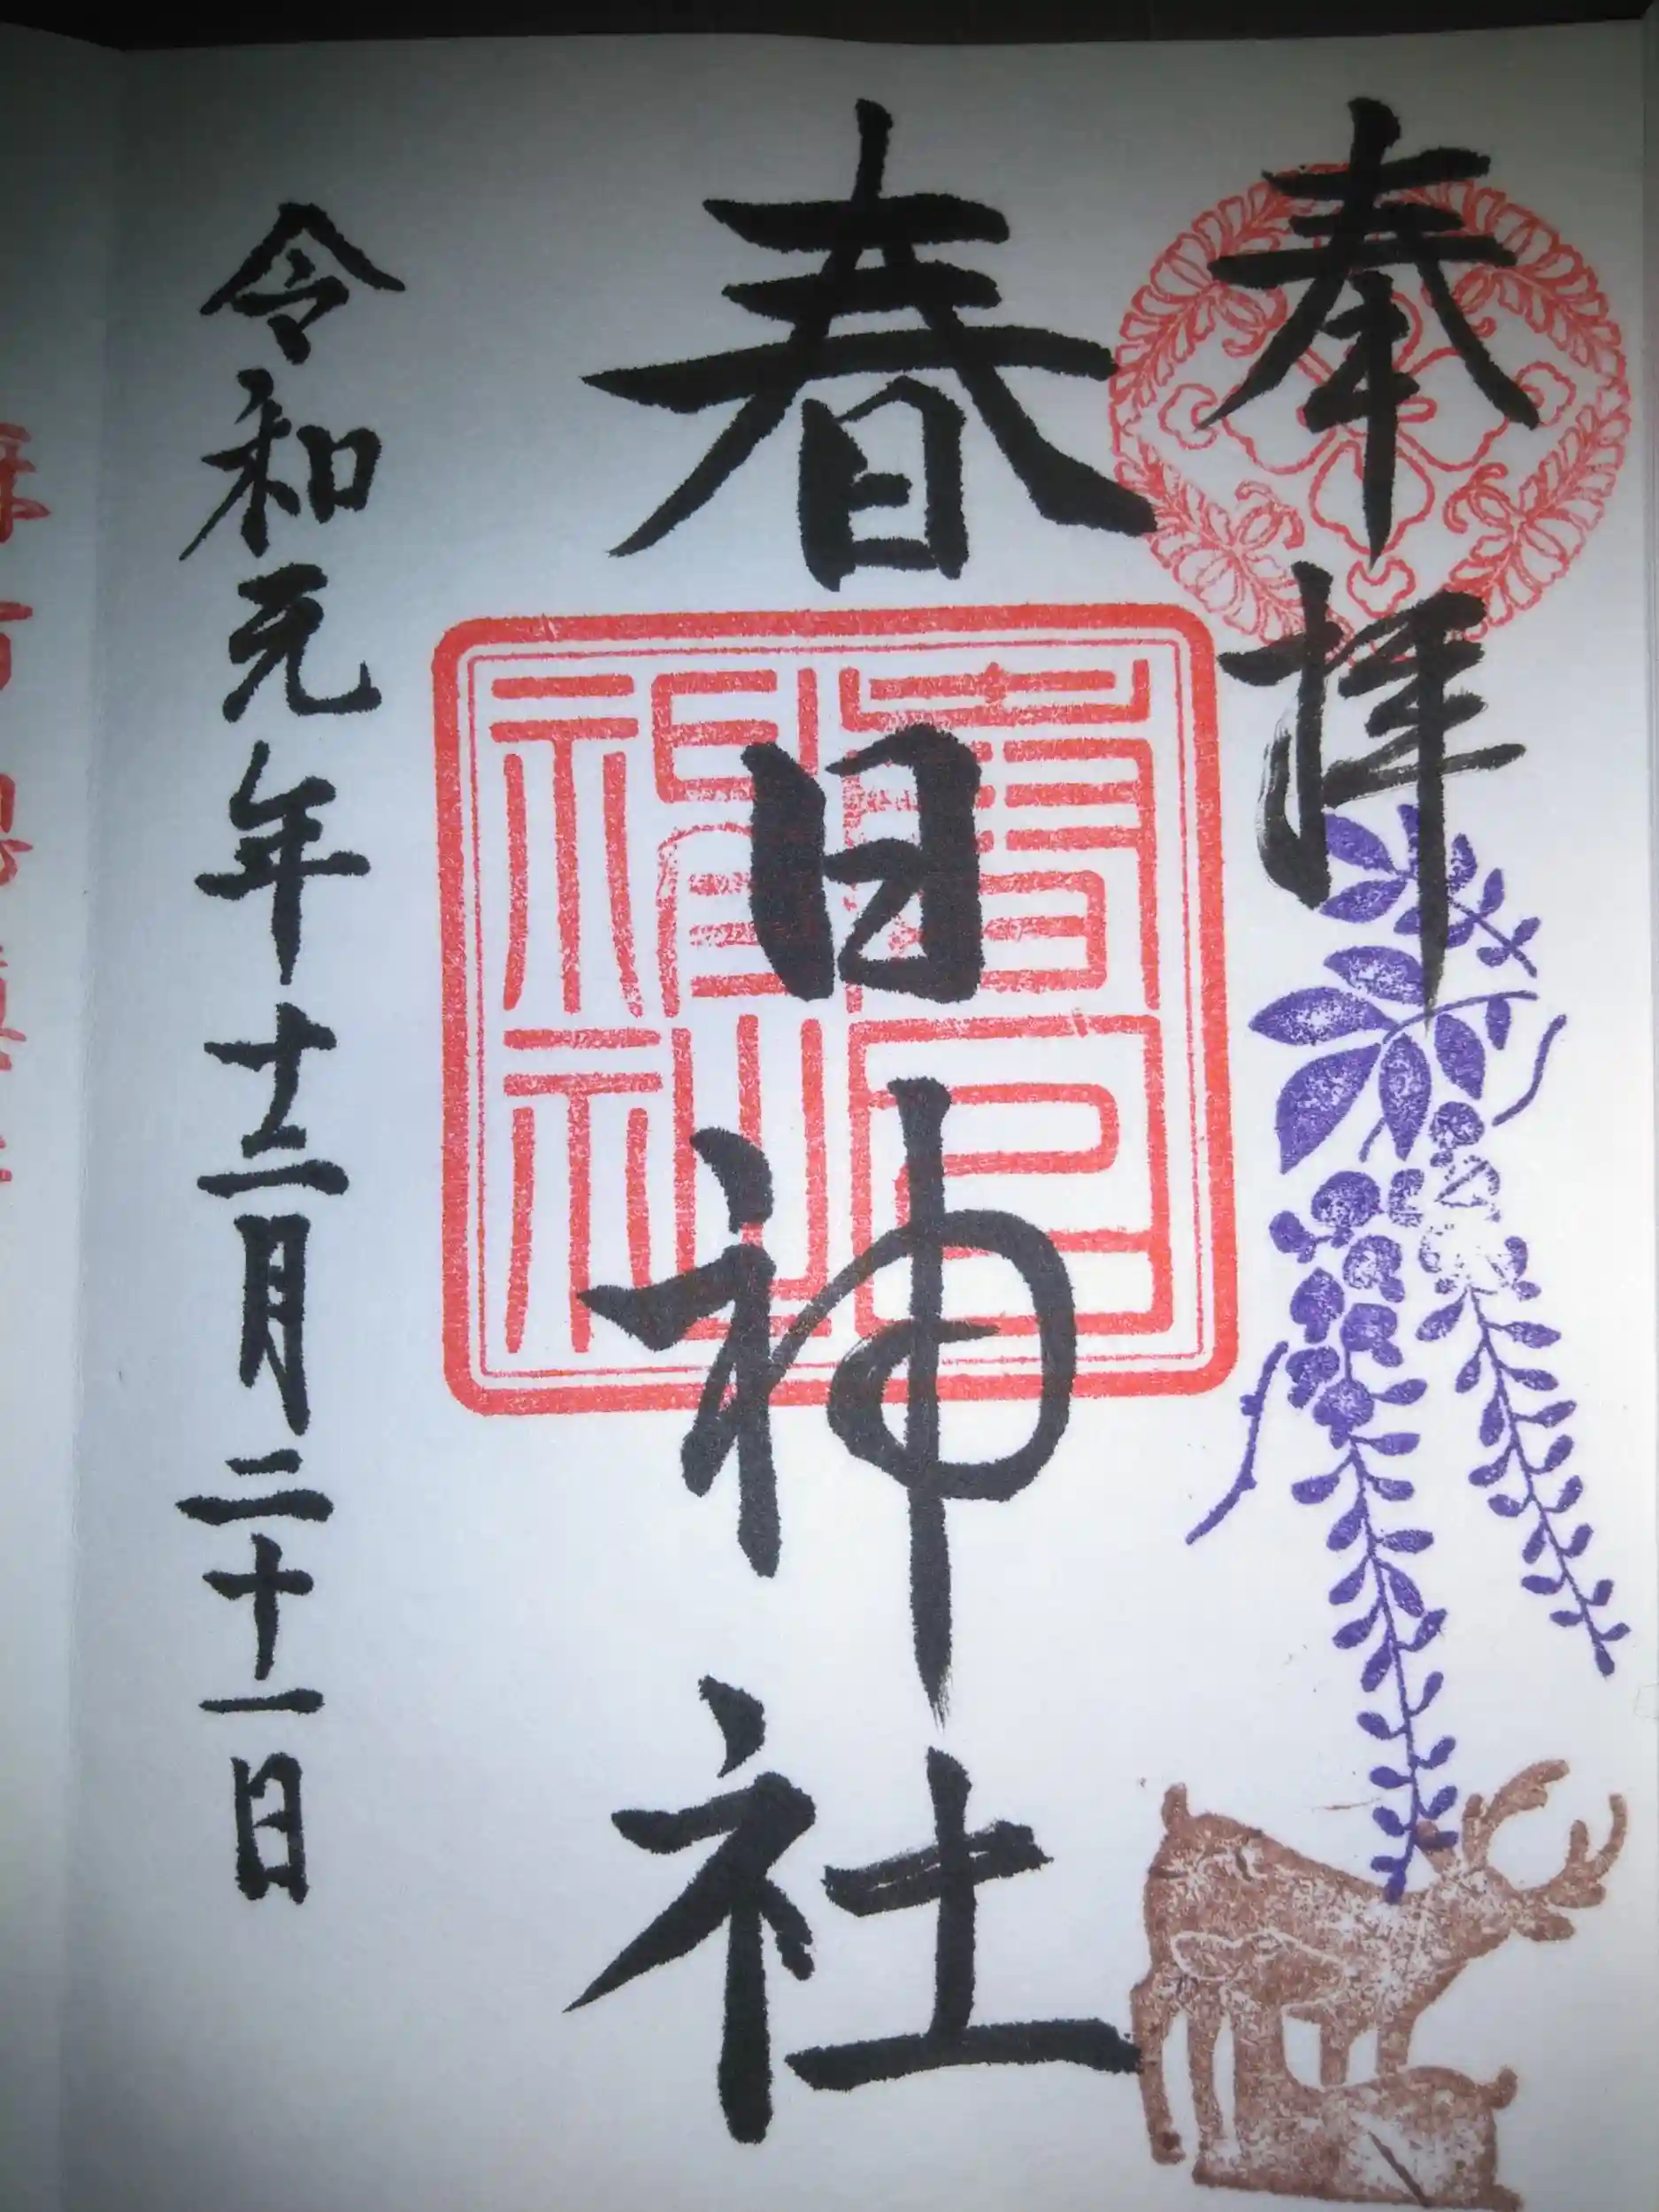 奉拝
春日神社
春日神社
令和元年十二月二十一日